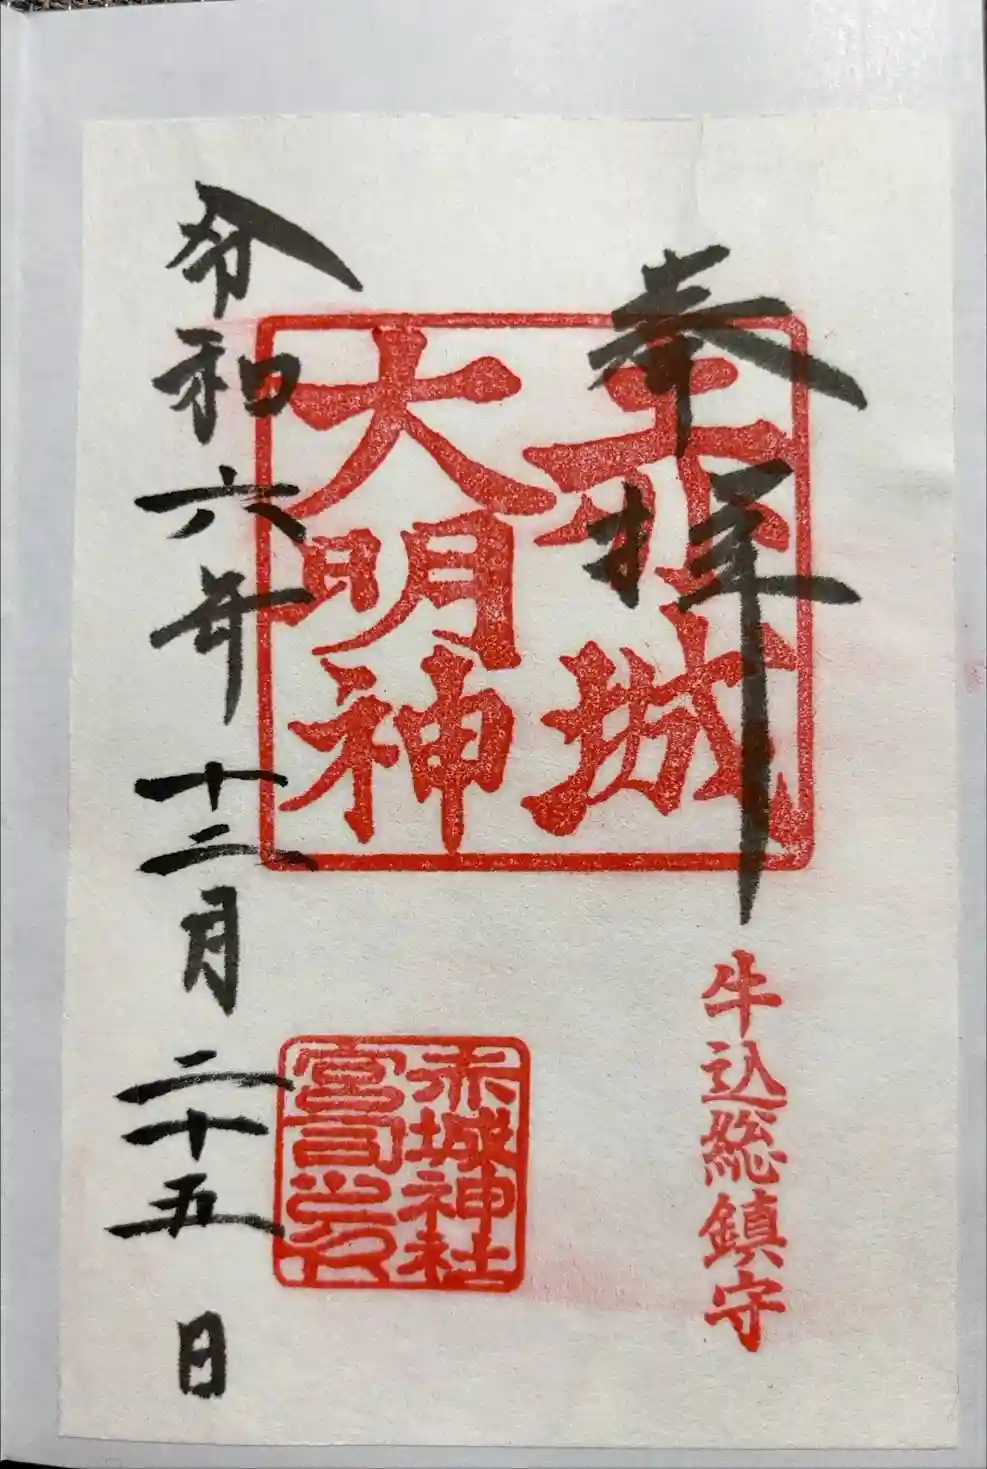 奉拝
赤城
大明神
牛込総鎮守
令和六年十二月二十五日
赤城神社
宮司之印